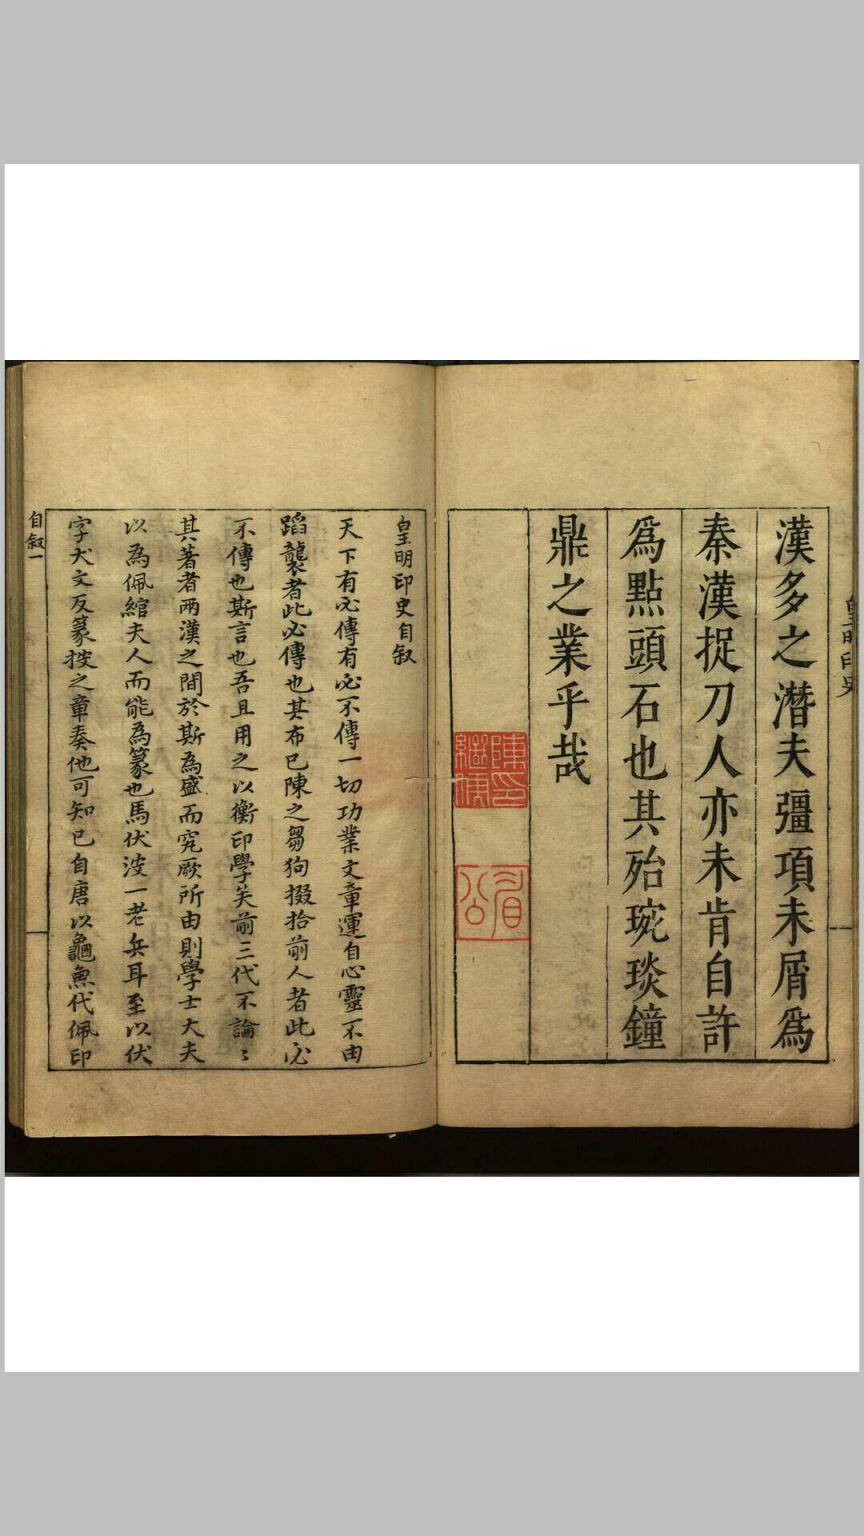 漢多之潛夫彊項未屑爲
秦漢捉刀人亦未肯自許
爲點頭石也其殆琬琰鐘
鼎之業乎哉
陳印
繼儒
眉公
皇明印史
皇明印史自叙
天下有必傳有必不傳一切功業文章運自心靈不由
蹈襲者此必傳也其布已陳之芻狗掇拾前人者此必
不傳也斯言也吾且用之以衡印學矣前三代不論〻
其著者兩漢之間於斯為盛而究厥所由則學士大夫
以為佩綰夫人而能為篆也馬伏波一老兵耳至以伏
字犬文反篆按之章奏他可知已自唐以龜魚代佩印
自叙一